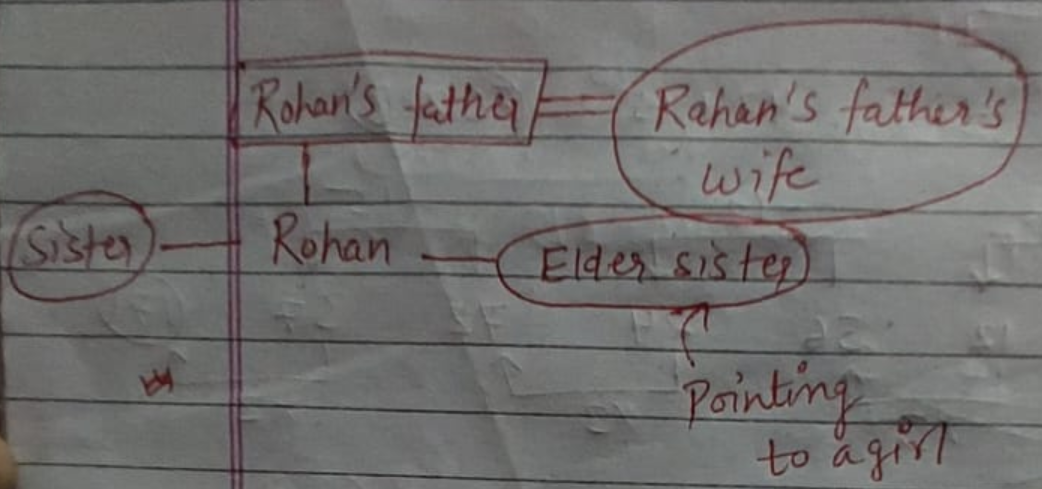 Rohan's father
Rahan's father's
wife
Sister
Rohan
Elder sister
Pointing
to a girl